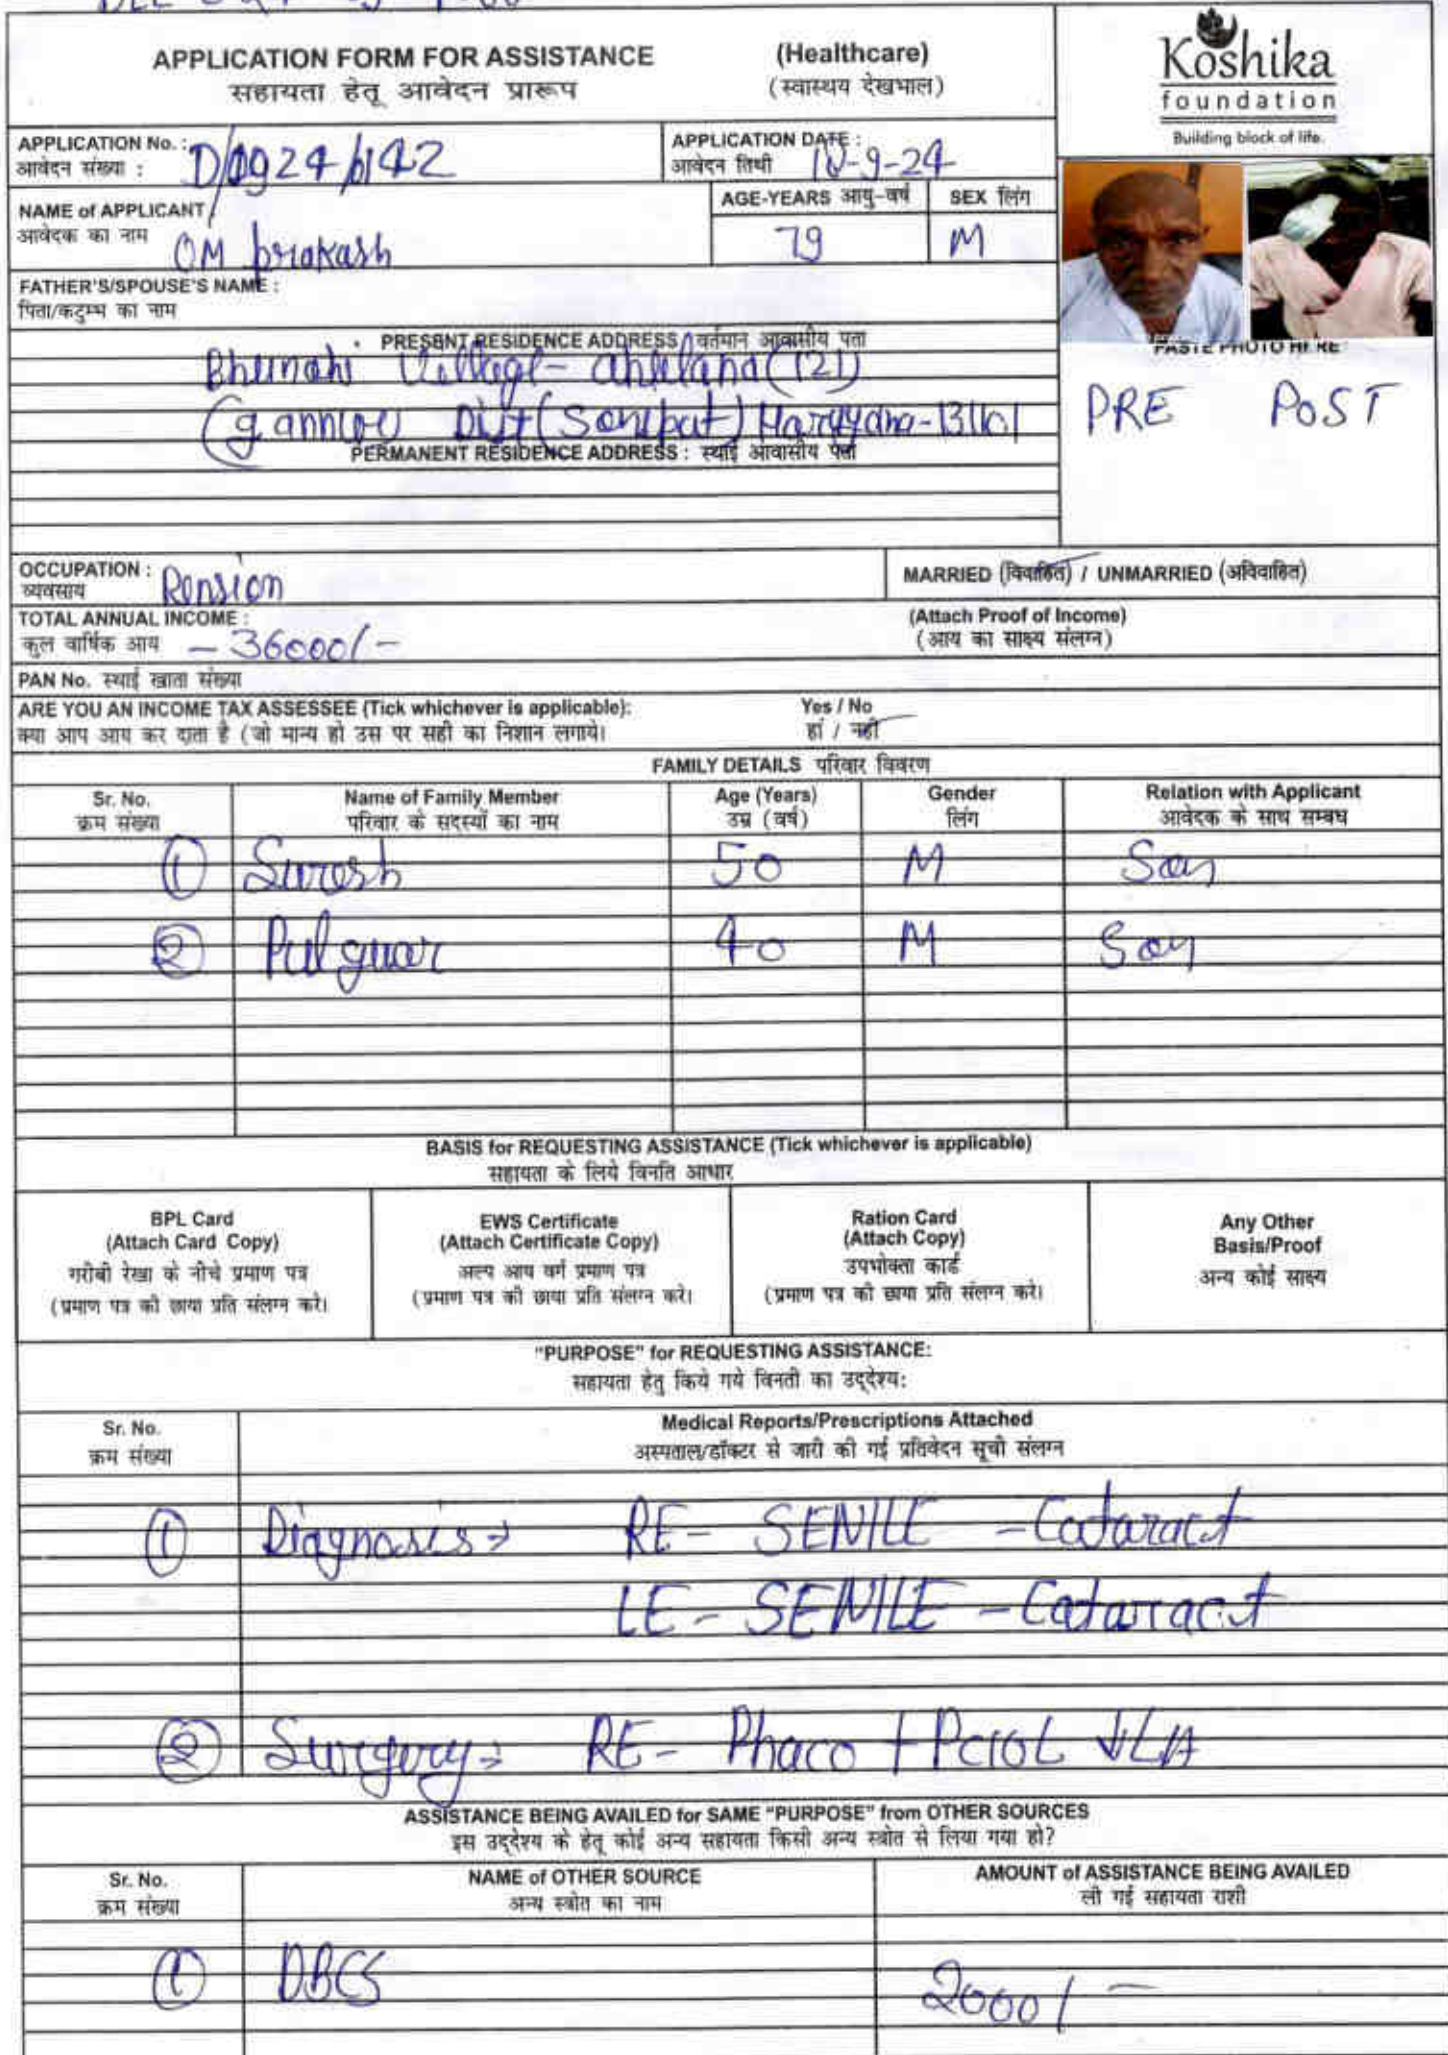 APPLICATION FORM FOR ASSISTANCE
(Healthcare)
सहायता हेतू आवेदन प्रारूप
(स्वास्थय देखभाल)
Koshika
foundation
Building block of life.
APPLICATION No. :
आवेदन संख्या :
APPLICATION DATE :
आवेदन तिथी
-9-24
NAME of APPLICANT
आवेदक का नाम OM prakash
AGE-YEARS आयु-वर्ष
79
SEX लिंग
M
FATHER'S/SPOUSE'S NAME :
पिता/कटुम्भ का नाम
PRESENT RESIDENCE ADDRESS वर्तमान आवासीय पता
Village-
Dist (Sonipat) Haryana-
PERMANENT RESIDENCE ADDRESS : स्थाई आवासीय पता
PASTE PHOTO HERE
PRE POST
OCCUPATION :
व्यवसाय Pension
MARRIED (विवाहित) / UNMARRIED (अविवाहित)
TOTAL ANNUAL INCOME :
कुल वार्षिक आय – 36000/-
(Attach Proof of Income)
(आय का साक्ष्य संलग्न)
PAN No. स्थाई खाता संख्या
ARE YOU AN INCOME TAX ASSESSEE (Tick whichever is applicable): Yes / No
क्या आप आय कर दाता है (जो मान्य हो उस पर सही का निशान लगाये। हां / नहीं
FAMILY DETAILS परिवार विवरण
Sr. No. Name of Family Member Age (Years) Gender Relation with Applicant
क्रम संख्या परिवार के सदस्यों का नाम उम्र (वर्ष) लिंग आवेदक के साथ सम्बध
1 Suresh 50 M Son
2 40 M Son
BASIS for REQUESTING ASSISTANCE (Tick whichever is applicable)
सहायता के लिये विनति आधार
BPL Card
(Attach Card Copy)
गरीबी रेखा के नीचे प्रमाण पत्र
(प्रमाण पत्र की छाया प्रति संलग्न करे।
EWS Certificate
(Attach Certificate Copy)
अल्प आय वर्ग प्रमाण पत्र
(प्रमाण पत्र की छाया प्रति संलग्न करे।
Ration Card
(Attach Copy)
उपभोक्ता कार्ड
(प्रमाण पत्र की छाया प्रति संलग्न करे।
Any Other
Basis/Proof
अन्य कोई साक्ष्य
"PURPOSE" for REQUESTING ASSISTANCE:
सहायता हेतु किये गये विनती का उद्देश्य:
Sr. No. Medical Reports/Prescriptions Attached
क्रम संख्या अस्पताल/डॉक्टर से जारी की गई प्रतिवेदन सूची संलग्न
1 Diagnosis → RE- SENILE - Cataract
LE- SENILE - Cataract
2 Surgery → RE- Phaco + PCIOL
ASSISTANCE BEING AVAILED for SAME "PURPOSE" from OTHER SOURCES
इस उद्देश्य के हेतू कोई अन्य सहायता किसी अन्य स्त्रोत से लिया गया हो?
Sr. No. NAME of OTHER SOURCE AMOUNT of ASSISTANCE BEING AVAILED
क्रम संख्या अन्य स्त्रोत का नाम ली गई सहायता राशी
1 DBCS 2000/-